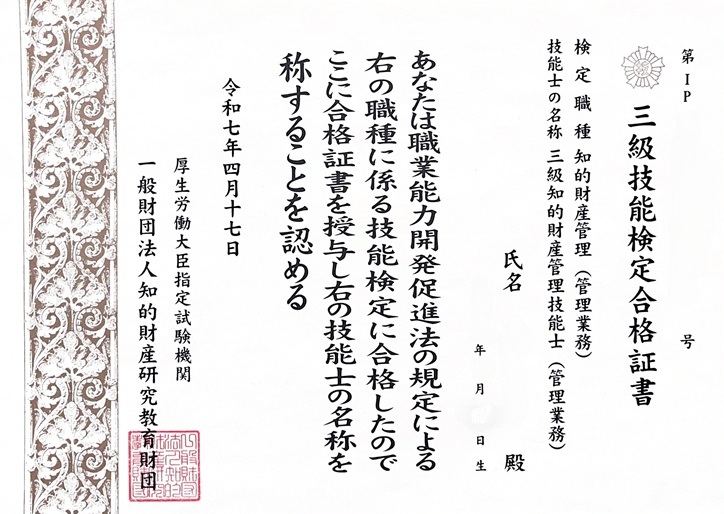 第IP 号
三級技能検定合格証書
検定職種 知的財産管理（管理業務）
技能士の名称 三級知的財産管理技能士（管理業務）
氏名 殿
年 月 日生
あなたは職業能力開発促進法の規定による
右の職種に係る技能検定に合格したので
ここに合格証書を授与し右の技能士の名称を
称することを認める
令和七年四月十七日
厚生労働大臣指定試験機関
一般財団法人知的財産研究教育財団